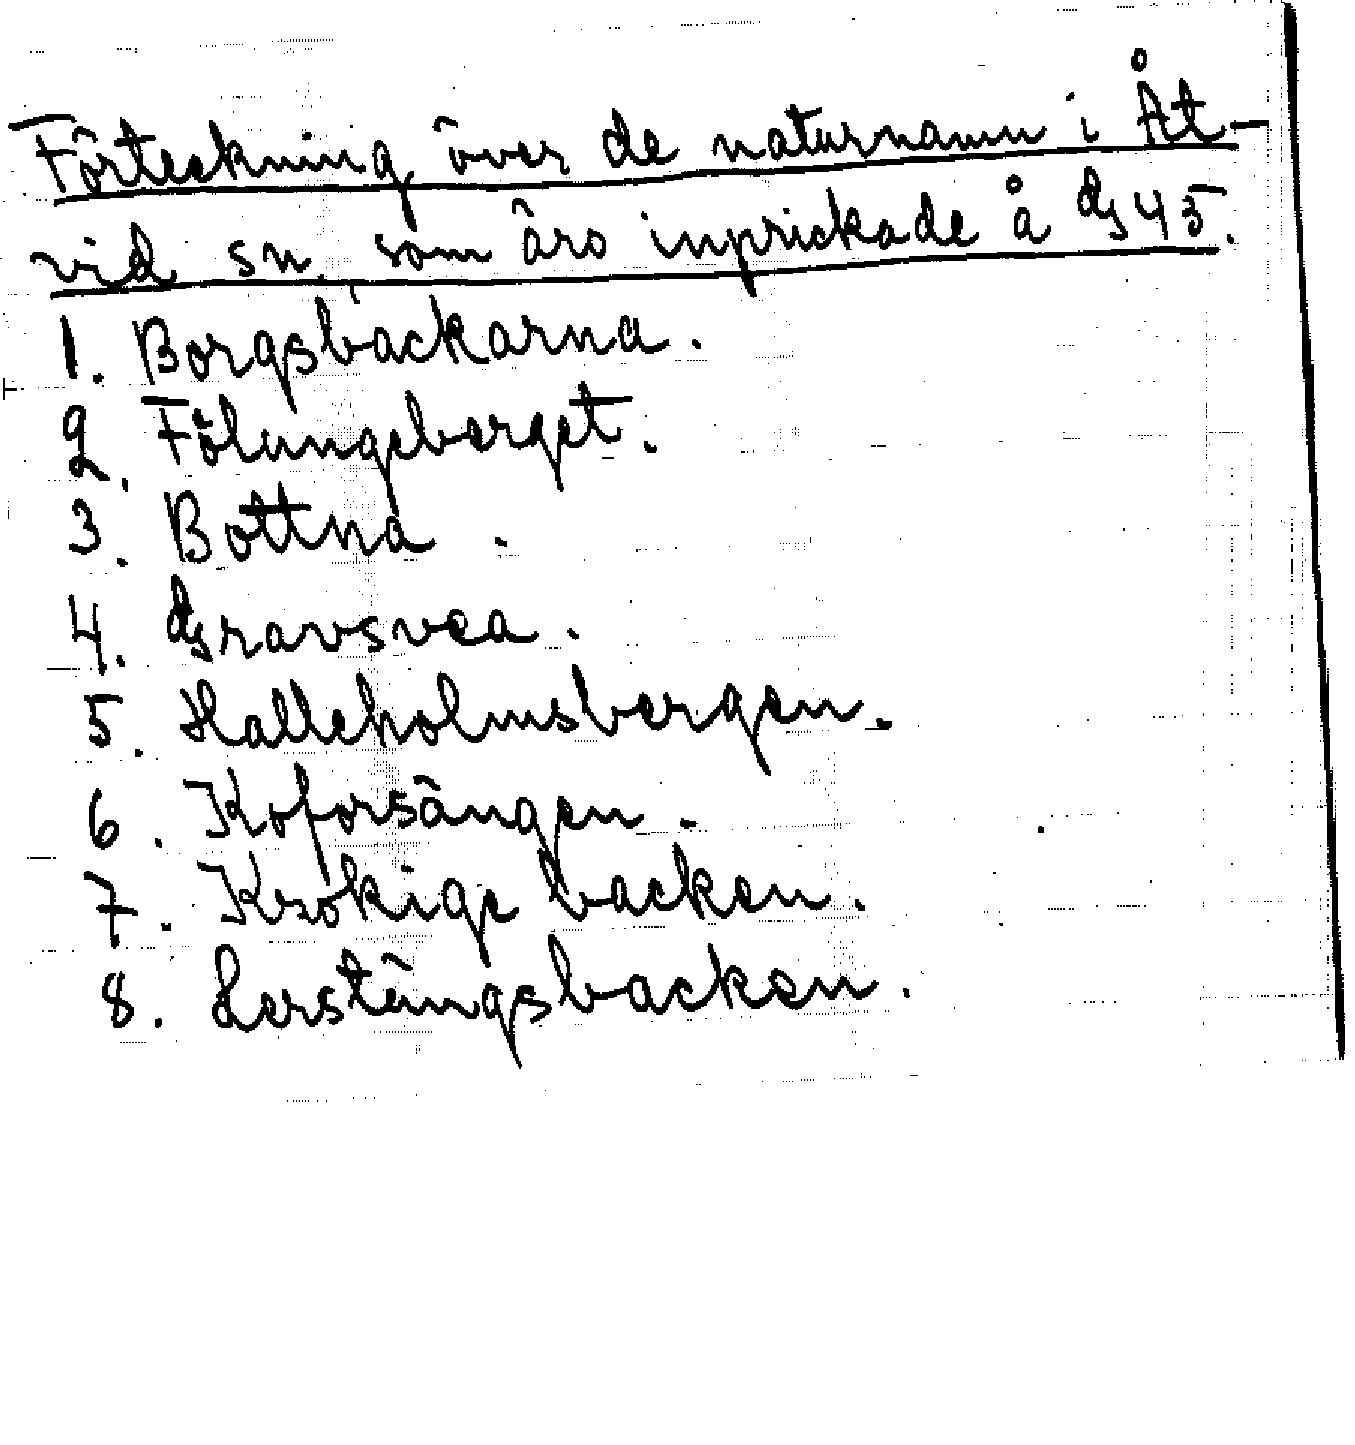 Förteckning över de naturnamn i Åt-
vid sn. som äro inprickade å G 45.
1. Borgsbackarna.
2. Fölungsberget.
3. Bottna.
4. Gravsvea.
5. Halleholmsbergen.
6. Koforsängen.
7. Krokige backen.
8. Lerstängsbacken.